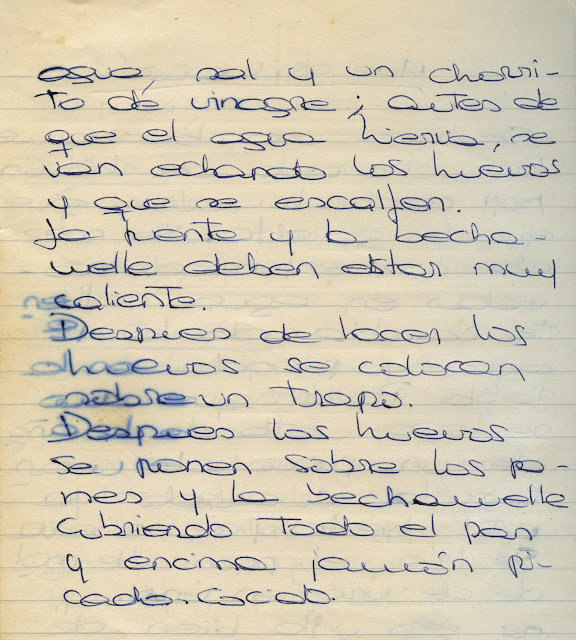 agua, sal y un chorri-
to de vinagre; antes de
que el agua hierva, se
van echando los huevos
y que se escalfen.
La fuente y la becha-
melle deben estar muy
caliente.
Despues de hacer los
huevos se colocan
sobre un trapo.
Despues los huevos
se ponen sobre los pa-
nes y la bechamelle
cubriendo todo el pan
y encima jamón pi-
cado. Cocido.